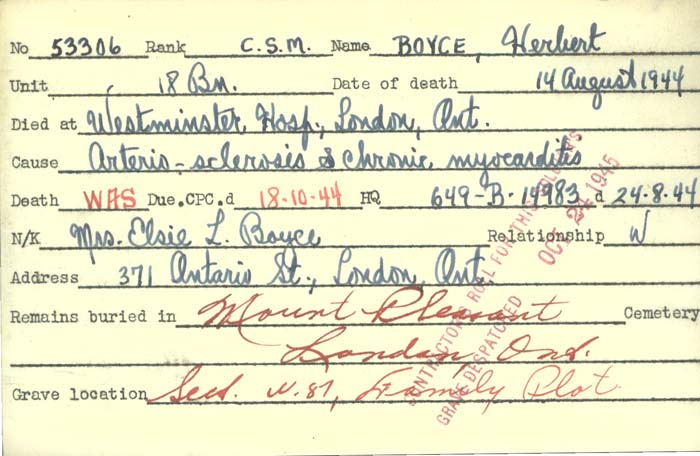 No 53306 Rank C.S.M. Name BOYCE, Herbert
Unit 18 Bn. Date of death 14 August 1944
Died at Westminster Hosp., London, Ont.
Cause Arterio-sclerosis & chronic myocarditis
Death WAS Due.CPC.d 18-10-44 HQ 649-B-14983 d 24-8-44
N/K Mrs. Elsie L. Boyce Relationship W
Address 371 Ontario St., London, Ont.
Remains buried in Mount Pleasant Cemetery
London, Ont.
Grave location Sect. W. 87, Family Plot.
ROLL FOR THIS
GRAVE DESPATCHED
OCT 1945